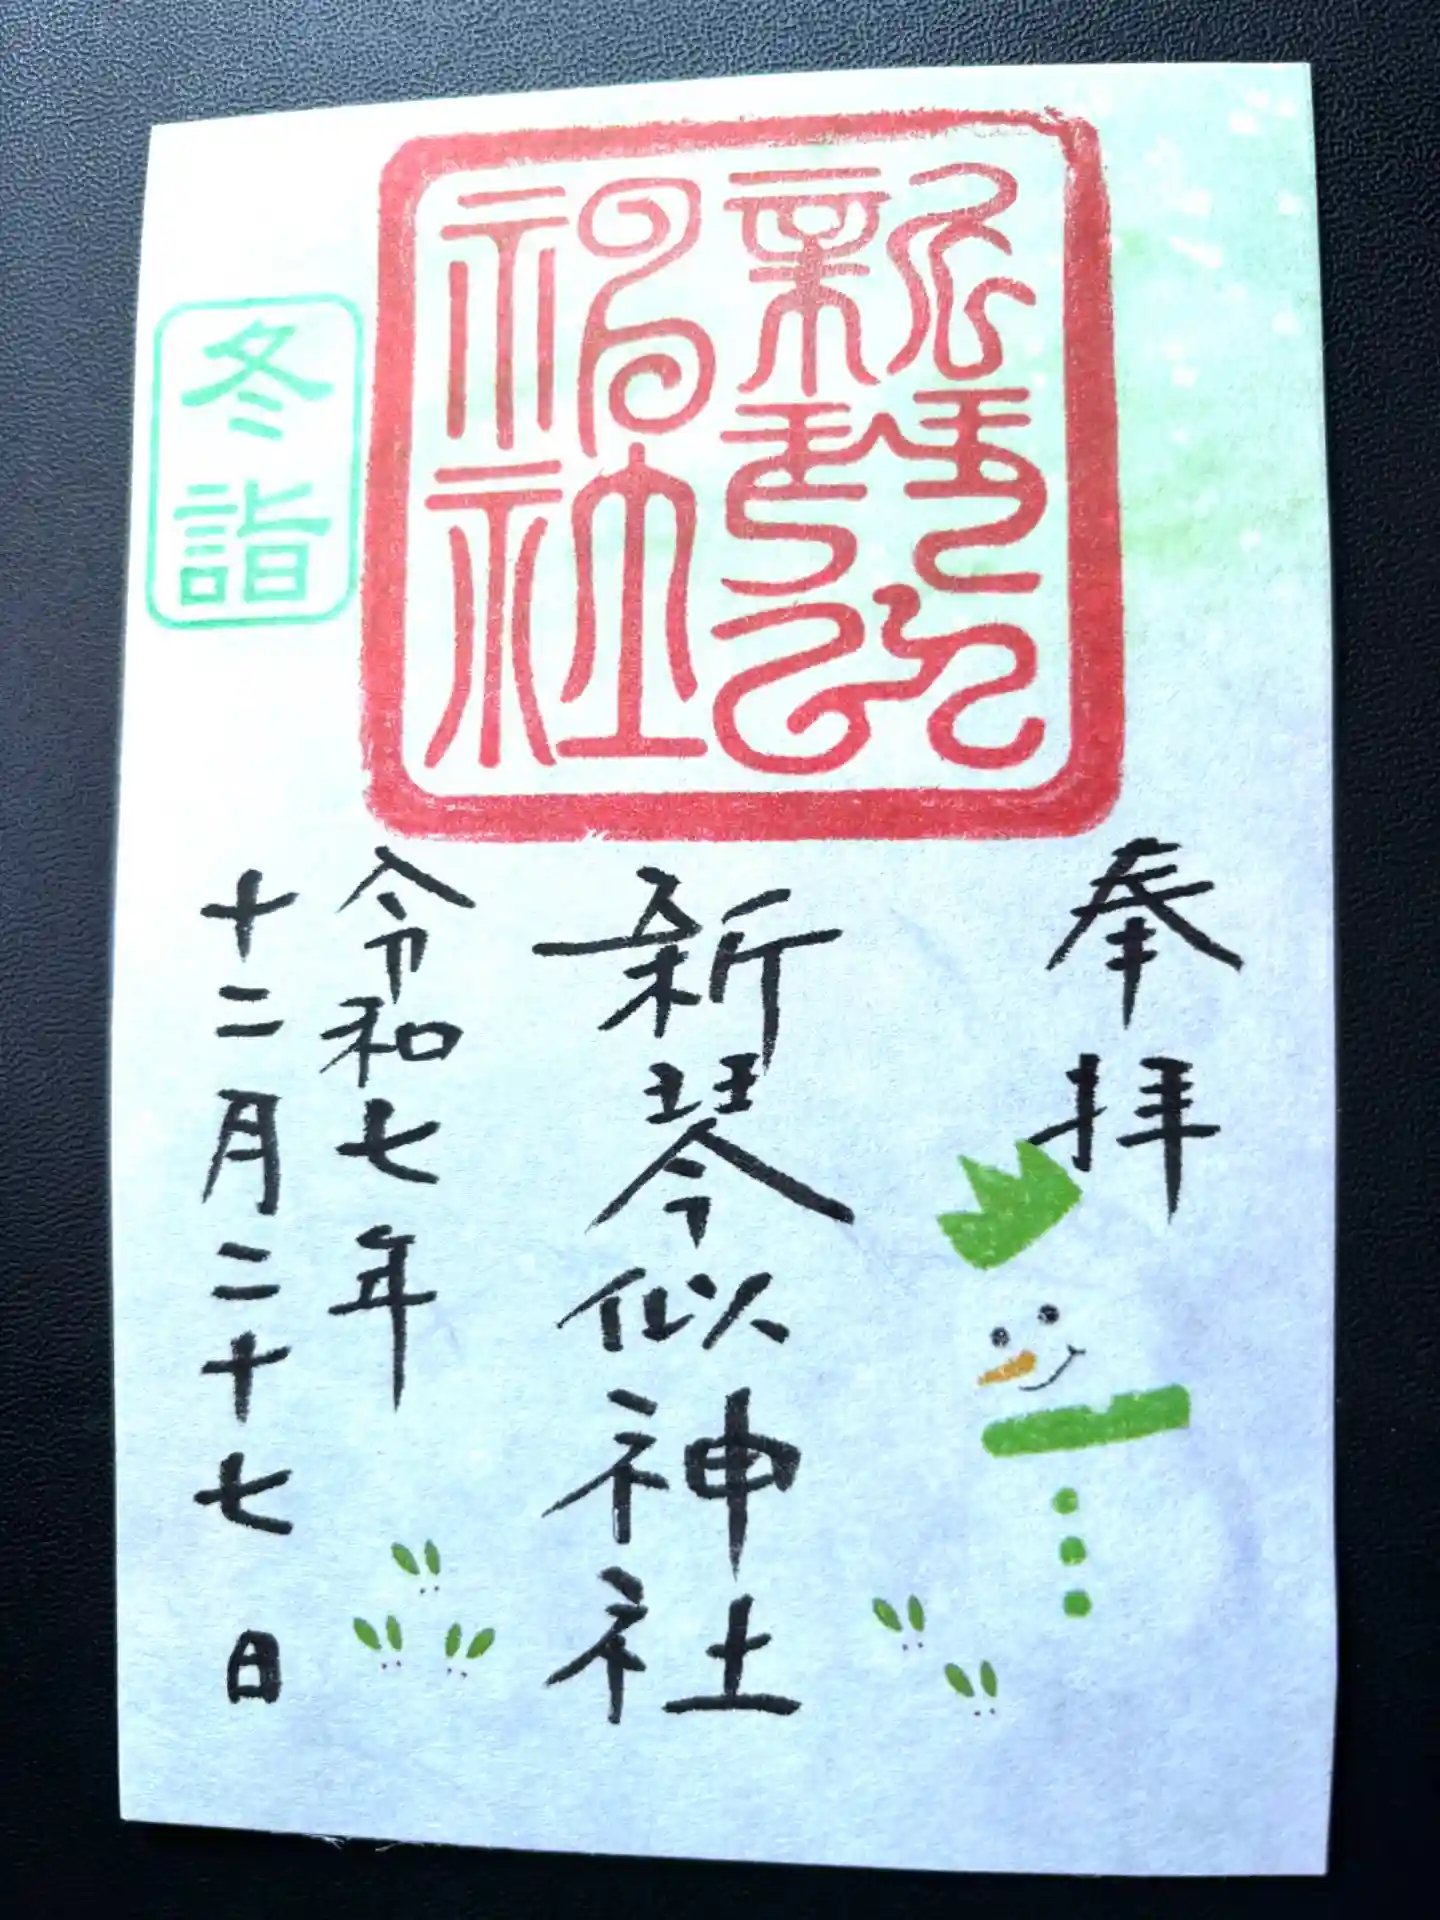 奉拝
新琴似神社
新琴似
神社
令和七年
十二月二十七日
冬詣